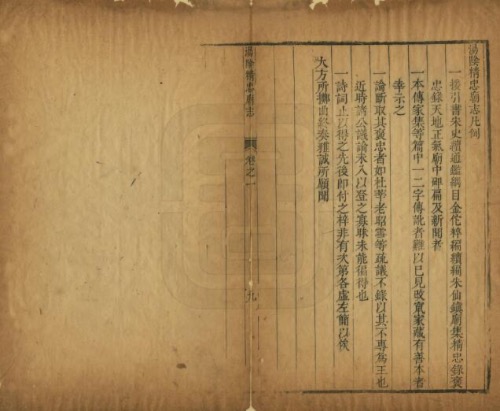 湯陰精忠廟志凡例
一援引書宋史續通鑑綱目金佗粹編續編朱仙鎮廟集精忠錄褒
忠錄天地正氣廟中碑扁及新聞者
一本傳家集等篇中一二字傳訛者難以己見改竄家藏有善本者
幸示之
一論斷取其褒忠者如杜莘老昭雪等疏議不錄以其不專為王也
近時諸公議論未入以登之寡昧未能徧得也
一詩詞止以得之先後即付之梓非有次第各虛左簡以俟
大方所擲曲終奏雅誠所願聞
湯陰精忠廟志
卷之一
九